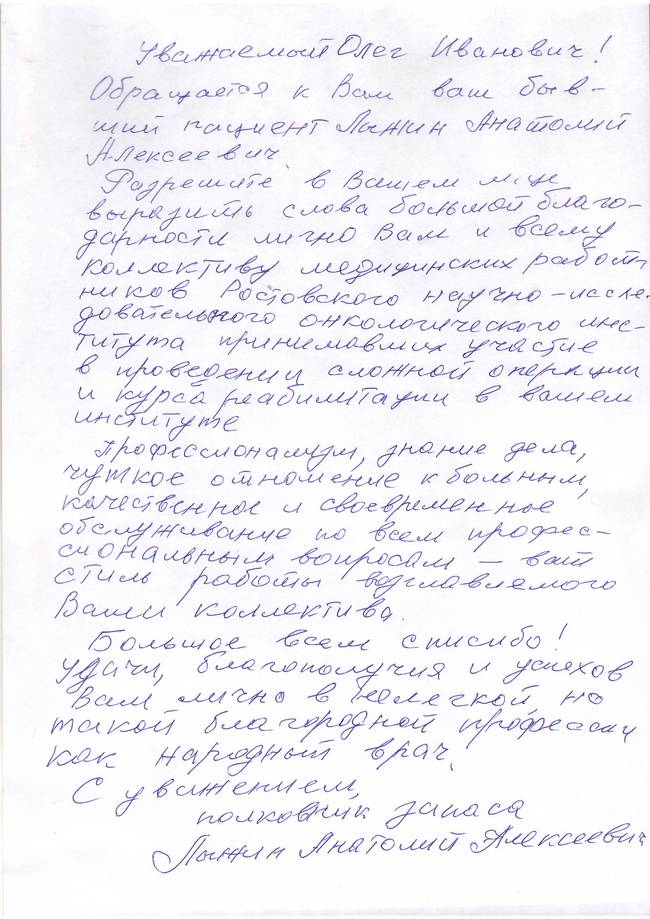 Уважаемый Олег Иванович!
Обращается к Вам ваш быв-
ший пациент Лыжин Анатолий
Алексеевич.
Разрешите в Вашем лице
выразить слова большой благо-
дарности лично Вам и всему
коллективу медицинских работ-
ников Ростовского научно-иссле-
довательного онкологического инс-
титута принимавших участие
в проведении сложной операции
и курса реабилитации в вашем
институте
Профессионализм, знание дела,
чуткое отношение к больным,
качественное и своевременное
обслуживание по всем профес-
сиональным вопросам — ваш
стиль работы возглавляемого
Вами коллектива.
Большое всем спасибо!
Удачи, благополучия и успехов
Вам лично в нелегкой, но
такой благородной профессии
как народный врач.
С уважением,
полковник запаса
Лыжин Анатолий Алексеевич